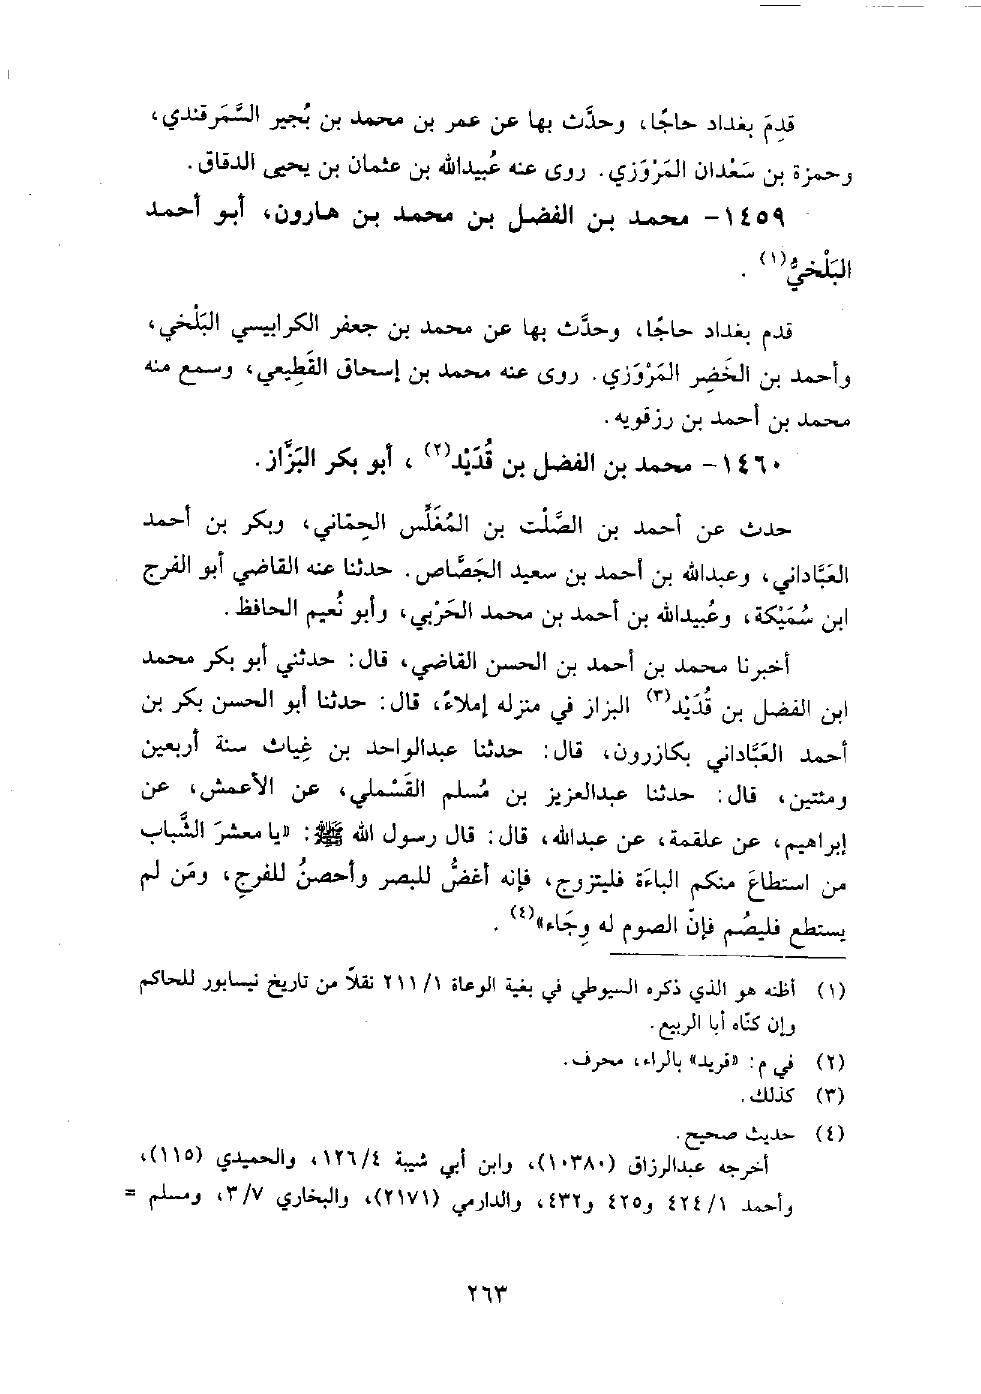 قدِمَ بغداد حاجًا، وحدَّث بها عن عمر بن محمد بن بُجير السَّمَرقندي،
وحمزة بن سَعْدان المَرْوَزي. روى عنه عُبيدالله بن عثمان بن يحيى الدقاق.
١٤٥٩- محمد بن الفضل بن محمد بن هارون، أبو أحمد
البَلْخيُّ(١).
قدم بغداد حاجًا، وحدَّث بها عن محمد بن جعفر الكرابيسي البَلْخي،
وأحمد بن الخَضِر المَرْوَزي. روى عنه محمد بن إسحاق القَطِيعي، وسمع منه
محمد بن أحمد بن رزقويه.
١٤٦٠- محمد بن الفضل بن قُدَيْد(٢)، أبو بكر البَزَّاز.
حدث عن أحمد بن الصَّلْت بن المُغَلِّس الحِمَّاني، وبكر بن أحمد
العَبَّاداني، وعبدالله بن أحمد بن سعيد الجَصَّاص. حدثنا عنه القاضي أبو الفرج
ابن سُمَيْكة، وعُبيدالله بن أحمد بن محمد الحَرْبي، وأبو نُعيم الحافظ.
أخبرنا محمد بن أحمد بن الحسن القاضي، قال: حدثني أبو بكر محمد
ابن الفضل بن قُدَيْد(٣) البزاز في منزله إملاءً، قال: حدثنا أبو الحسن بكر بن
أحمد العَبَّاداني بكازرون، قال: حدثنا عبدالواحد بن غِياث سنة أربعين
ومئتين، قال: حدثنا عبدالعزيز بن مُسلم القَسْملي، عن الأعمش، عن
إبراهيم، عن علقمة، عن عبدالله، قال: قال رسول الله ﷺ: «يا معشرَ الشَّباب
من استطاعَ منكم الباءَة فليتزوج، فإنه أغضُّ للبصر وأحصنُ للفرج، ومَن لم
يستطع فليصُم فإنّ الصوم له وِجَاء»(٤).
(١) أظنه هو الذي ذكره السيوطي في بغية الوعاة ١/ ٢١١ نقلاً من تاريخ نيسابور للحاكم
وإن كنّاه أبا الربيع.
(٢) في م: «قريد» بالراء، محرف.
(٣) كذلك.
(٤) حديث صحيح.
أخرجه عبدالرزاق (١٠٣٨٠)، وابن أبي شيبة ٤/ ١٢٦، والحميدي (١١٥)،
وأحمد ١/ ٤٢٤ و٤٢٥ و٤٣٢، والدارمي (٢١٧١)، والبخاري ٧/ ٣، ومسلم =
٢٦٣